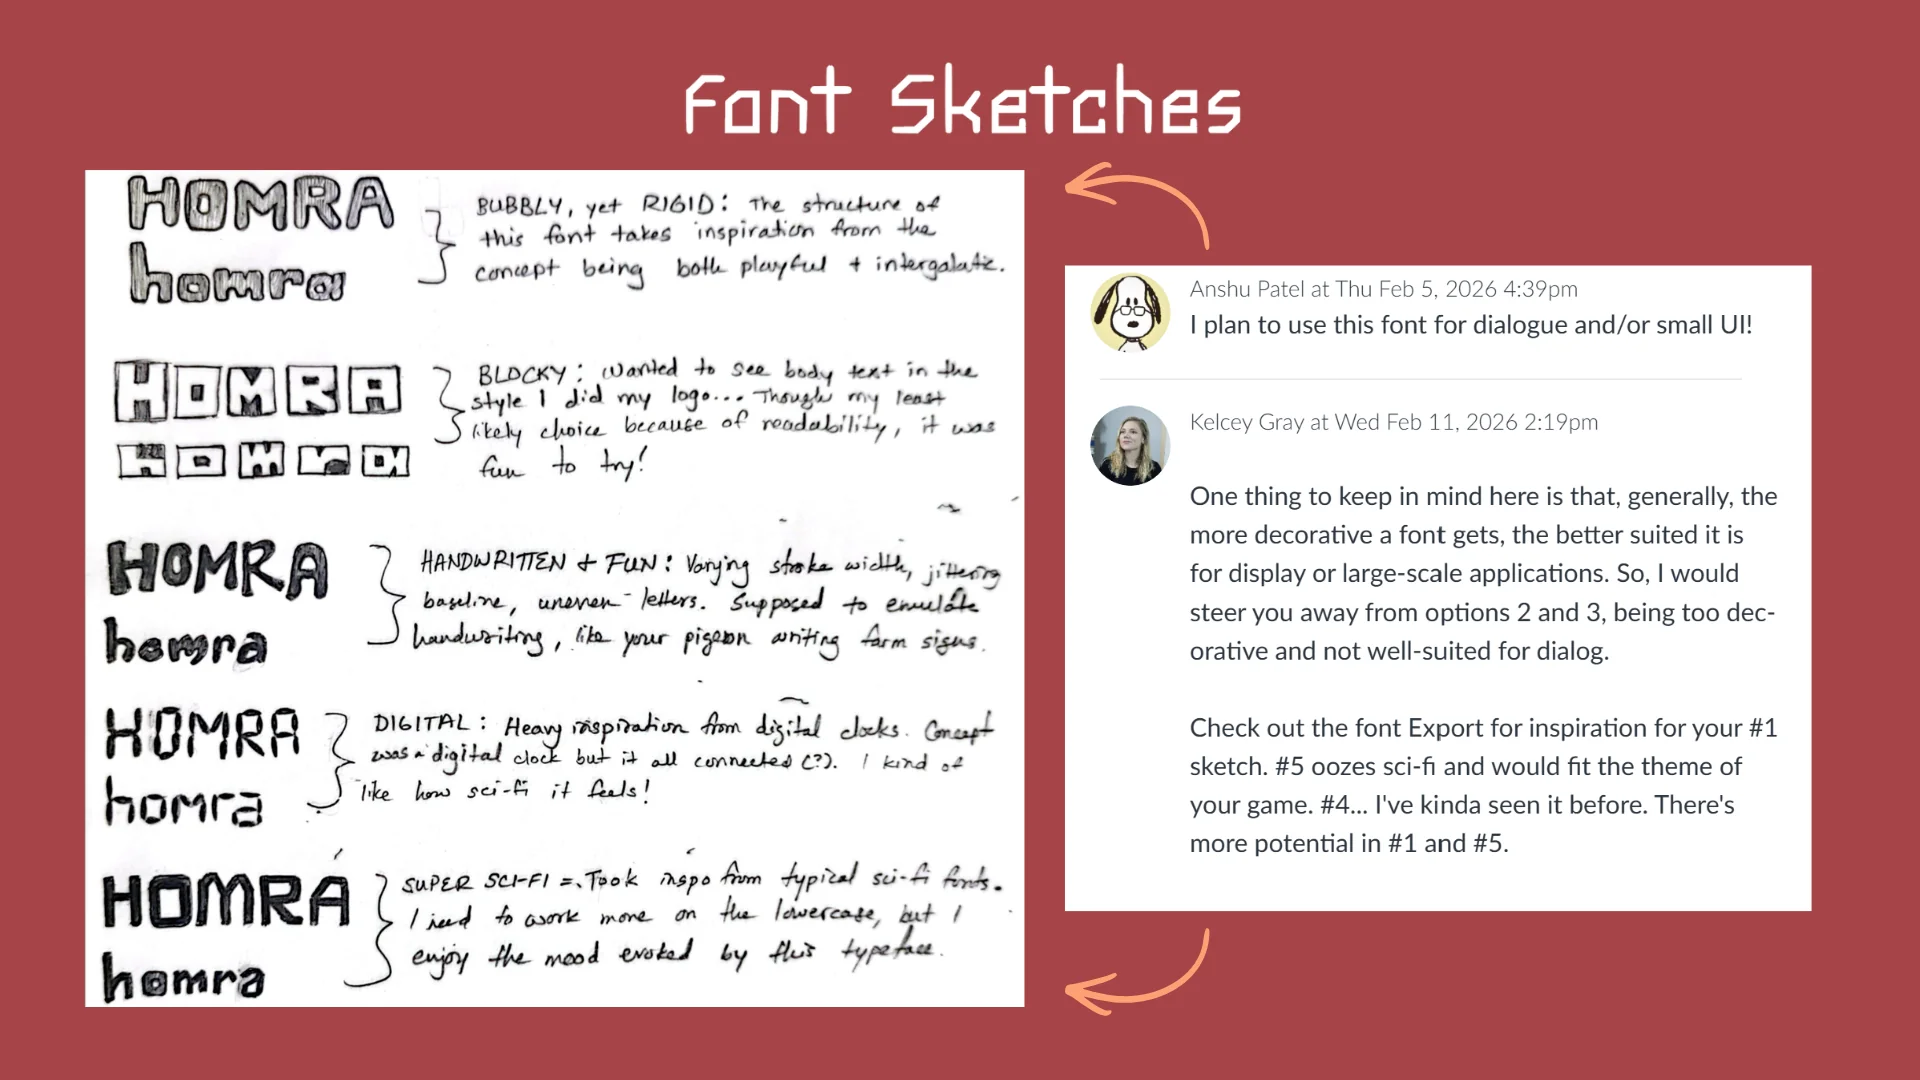 Font Sketches
HOMRA
homra
BUBBLY, yet RIGID: The structure of
this font takes inspiration from the
concept being both playful + intergalatic.
HOMRA
homra
BLOCKY: Wanted to see body text in the
style I did my logo... Though my least
likely choice because of readability, it was
fun to try!
HOMRA
homra
HANDWRITTEN + FUN: Varying stroke width, jittering
baseline, uneven letters. Supposed to emulate
handwriting, like your pigeon writing farm signs.
HOMRA
homra
DIGITAL: Heavy inspiration from digital clocks. Concept
was a digital clock but it all connected (?). I kind of
like how sci-fi it feels!
HOMRA
homra
SUPER SCI-FI =. Took inspo from typical sci-fi fonts.
I need to work more on the lowercase, but I
enjoy the mood evoked by this typeface.
Anshu Patel at Thu Feb 5, 2026 4:39pm
I plan to use this font for dialogue and/or small UI!
Kelcey Gray at Wed Feb 11, 2026 2:19pm
One thing to keep in mind here is that, generally, the
more decorative a font gets, the better suited it is
for display or large-scale applications. So, I would
steer you away from options 2 and 3, being too dec-
orative and not well-suited for dialog.
Check out the font Export for inspiration for your #1
sketch. #5 oozes sci-fi and would fit the theme of
your game. #4... I've kinda seen it before. There's
more potential in #1 and #5.